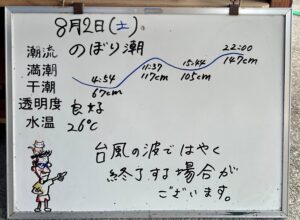 8月2日(土)。
潮流 のぼり潮
満潮 11:37 117cm 22:00 147cm
干潮 4:54 67cm 15:44 105cm
透明度 良好
水温 26℃
台風の波ではやく
終了する場合が
ございます。